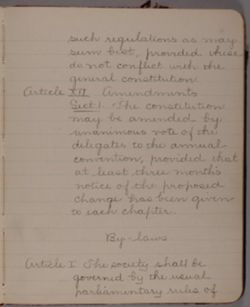 such regulations as may
seem best, provided these
do not conflict with the
general constitution
Article XII Amendments
Sect 1. The constitution
may be amended by
unanimous vote of the
delegates to the annual
convention, provided that
at least three month's
notice of the proposed
change has been given
to each chapter.
By-laws
Article I The society shall be
governed by the usual
parliamentary rules of